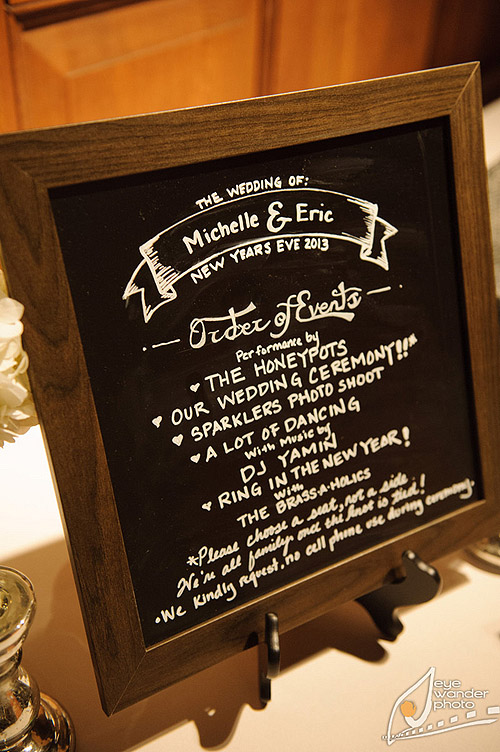 THE WEDDING OF:
Michelle & Eric
NEW YEARS EVE 2013
Order of Events
Performance by
♥ THE HONEYPOTS
♥ OUR WEDDING CEREMONY!!*
♥ SPARKLERS PHOTO SHOOT
♥ A LOT OF DANCING
With Music by
DJ YAMIN
♥ RING IN THE NEW YEAR!
with
THE BRASS-A-HOLICS
*Please choose a seat, not a side.
We're all family once the knot is tied!
• We kindly request, no cell phone use during ceremony.
eye
wander
photo